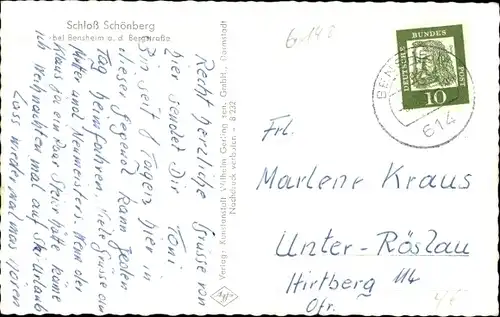 Schloß Schönberg
bei Bensheim a. d. Bergstraße
Recht herzliche Grüsse von
hier sendet Dir
Toni
Bin seit 8 Tagen hier in
dieser Gegend kann jeden
Tag heimfahren. Viele Grüsse an
Mutter und Neumeisters. Wenn der
Klaus ja ein paar Skier hätte käme
ich Weihnachten mal auf Skiurlaub
Lass wieder mal was hören
Verlag: Kunstanstalt Wilhelm Gerling sen. GmbH., Darmstadt
Nachdruck verboten - B 232
DEUTSCHE
BUNDES
POST
10
BEN
614
Frl.
Marlene Kraus
Unter-Röslau
Hirtberg 114
Ofr.